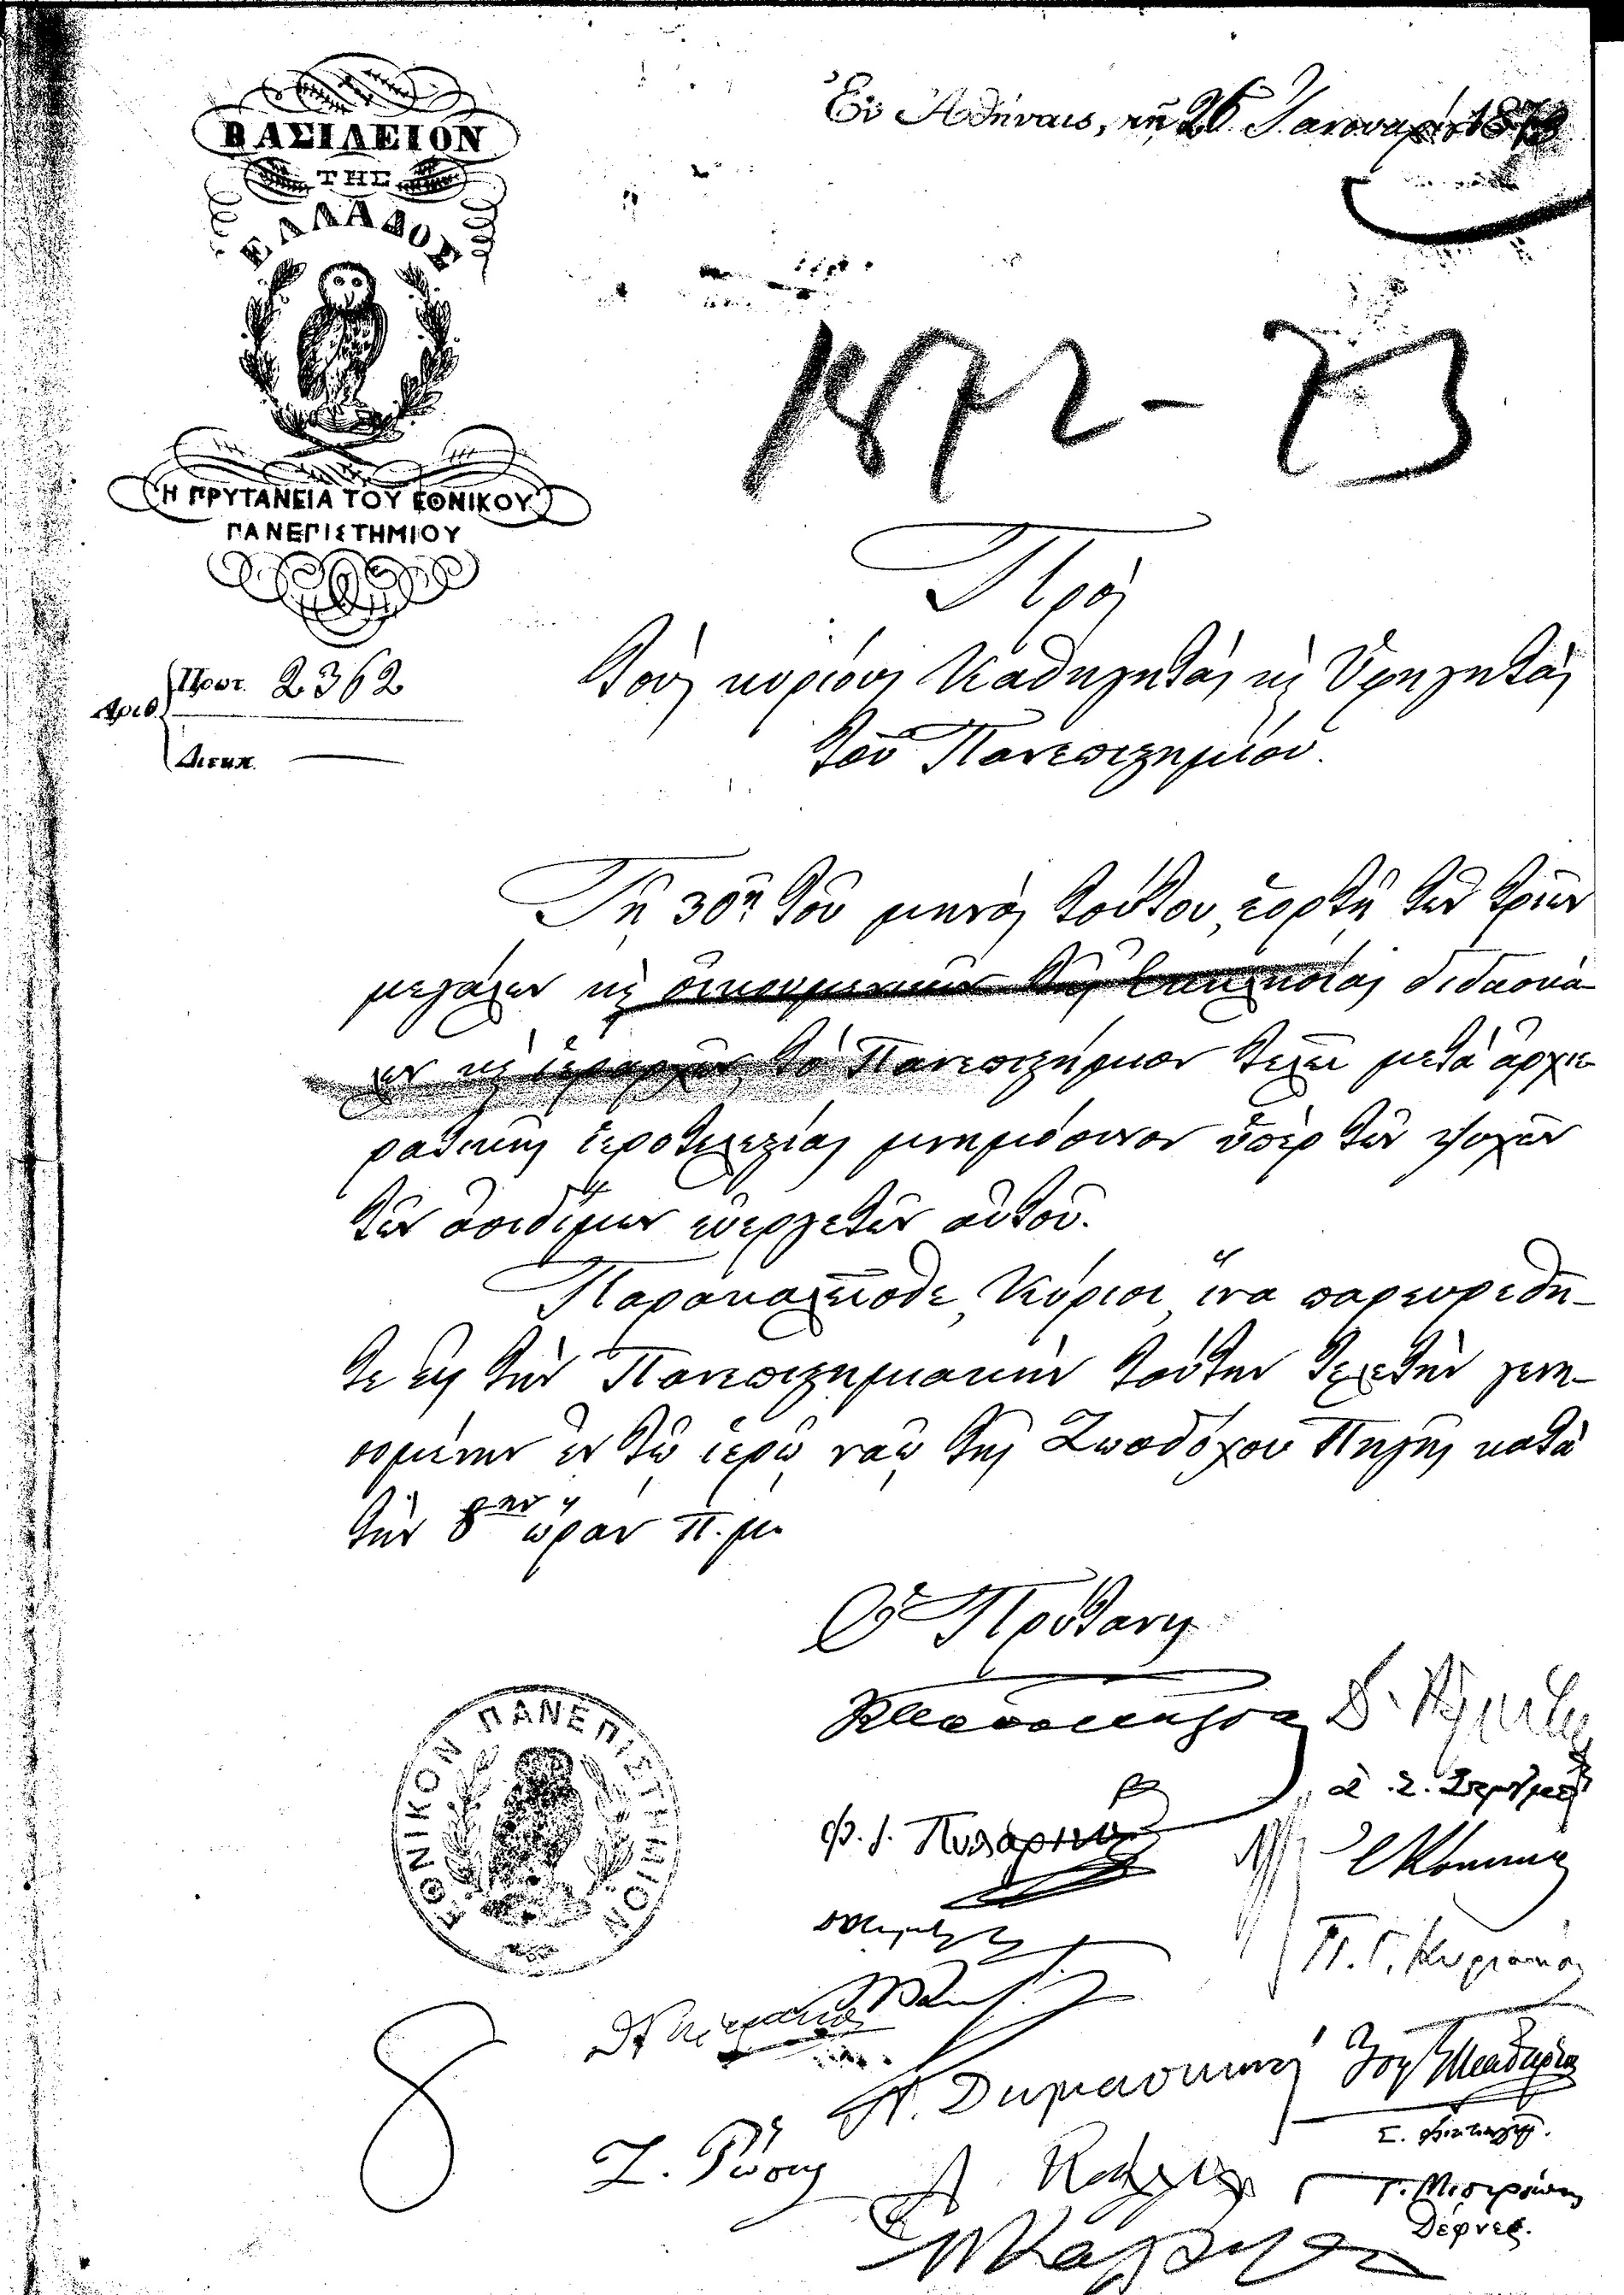 ΒΑΣΙΛΕΙΟΝ
ΤΗΣ
ΕΛΛΑΔΟΣ
Η ΠΡΥΤΑΝΕΙΑ ΤΟΥ ΕΘΝΙΚΟΥ
ΠΑΝΕΠΙΣΤΗΜΙΟΥ
Ἐν Ἀθήναις, τῇ 26 Ἰανουαρίου 1873
1872-73
Ἀριθ. Πρωτ. 2362
Διεκπ.
Πρὸς
τοὺς κυρίους Καθηγητὰς κ̀ Ὑφηγητὰς
τοῦ Πανεπιστημίου.
Τῇ 30ῇ τοῦ μηνὸς τούτου, ἑορτῇ τῶν τριῶν
μεγάλων κ̀ οἰκουμενικῶν τῆς Ἐκκλησίας διδασκά-
λων κ̀ ἱεραρχῶν, τὸ Πανεπιστήμιον τελεῖ μετὰ ἀρχιε-
ρατικῆς ἱεροτελεστίας μνημόσυνον ὑπὲρ τῶν ψυχῶν
τῶν ἀοιδίμων εὐεργετῶν αὐτοῦ.
Παρακαλεῖσθε, Κύριοι, ἵνα παρευρεθῆ-
τε εἰς τὴν Πανεπιστημιακὴν ταύτην τελετὴν γενη-
σομένην ἐν τῷ ἱερῷ ναῷ τῆς Ζωοδόχου Πηγῆς κατὰ
τὴν 8ην ὥραν π.μ.
Ὁ Πρύτανις
ΕΘΝΙΚΟΝ ΠΑΝΕΠΙΣΤΗΜΙΟΝ
Π. Γ. Κυριακός
Α. Δαμασκηνός
Ζ. Ῥώσης